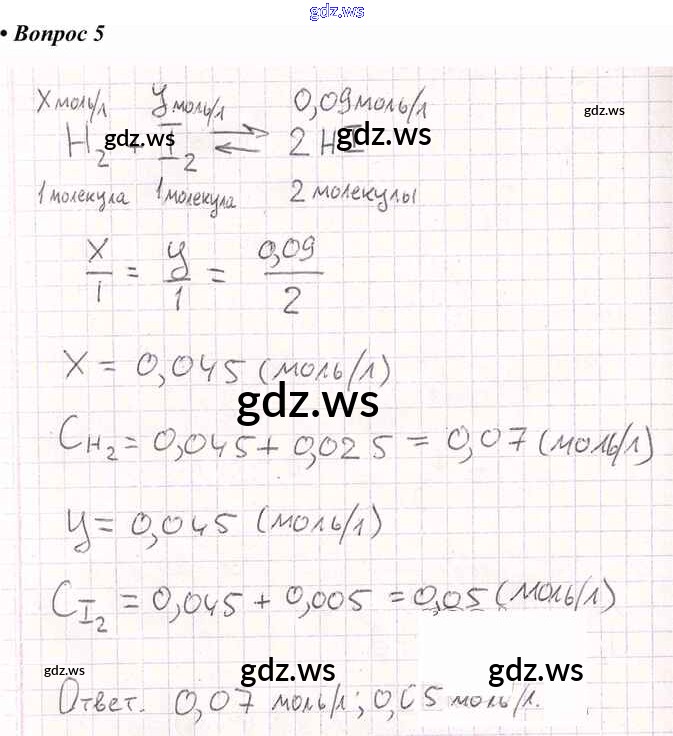 gdz.ws
• Вопрос 5
x моль/л y моль/л 0,09 моль/л
gdz.ws
H₂ + I₂ ⇄ 2 HI
gdz.ws gdz.ws
1 молекула 1 молекула 2 молекулы
x/1 = y/1 = 0,09/2
x = 0,045 (моль/л)
gdz.ws
C H₂ = 0,045 + 0,025 = 0,07 (моль/л)
y = 0,045 (моль/л)
C I₂ = 0,045 + 0,005 = 0,05 (моль/л)
gdz.ws gdz.ws gdz.ws
Ответ. 0,07 моль/л; 0,05 моль/л.